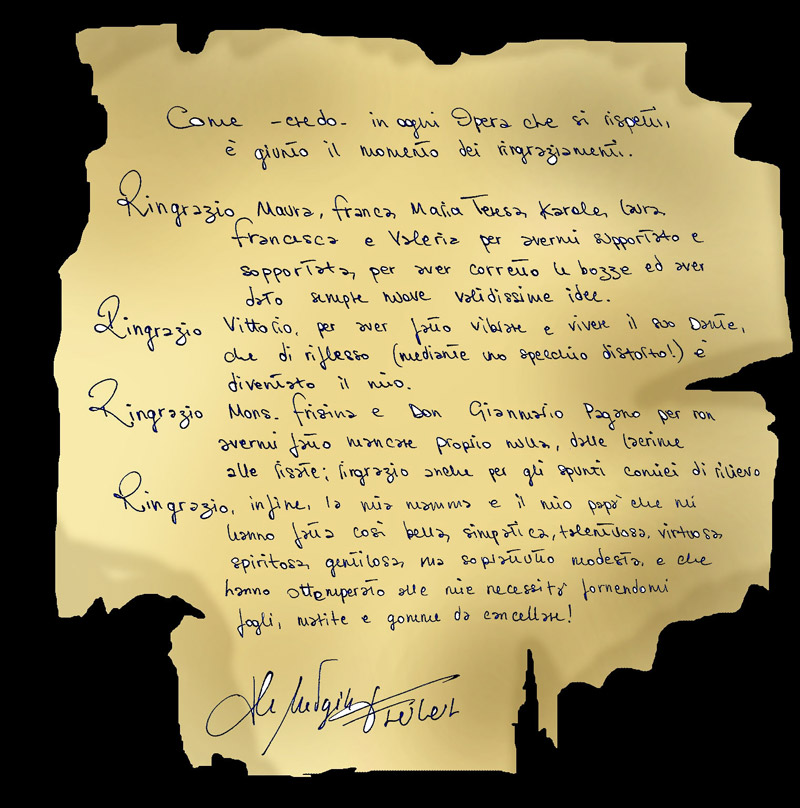 Come -credo- in ogni Opera che si rispetti,
è giunto il momento dei ringraziamenti.
Ringrazio Maura, Franca, Maria Teresa, Karole, Laura
Francesca e Valeria per avermi supportato e
sopportata, per aver corretto le bozze ed aver
dato sempre nuove validissime idee.
Ringrazio Vittorio, per aver fatto vibrare e vivere il suo Dante,
che di riflesso (mediante uno specchio distorto!) è
diventato il mio.
Ringrazio Mons. Frisina e Don Gianmario Pagano per non
avermi fatto mancare proprio nulla, dalle lacrime
alle risate; ringrazio anche per gli spunti comici di rilievo
Ringrazio, infine, la mia mamma e il mio papà che mi
hanno fatta così bella, simpatica, talentuosa, virtuosa
spiritosa, gentilosa, ma soprattutto modesta, e che
hanno ottemperato alle mie necessità fornendomi
fogli, matite e gomme da cancellare!